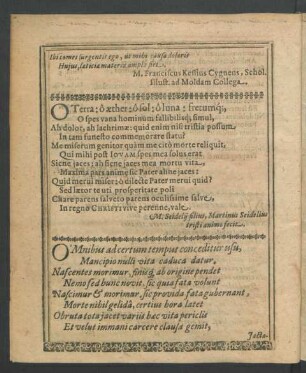 Ibi comes surgentis ego, ut mihi causa doloris
Hujus, laetitia materia ampla siet.
M. Franciscus Kessus Cygneus, Schol.
Illustr. ad Moldam Collega.
O Terra; ô aether; ô sol; ô luna; fretumq́;,
O spes vana hominum fallibilisq́; simul,
Ah dolor, ah lachrimae: quid enim nisi tristia possum
In tam funesto commemorare statu?
Me miserum genitor quàm me citò mortē reliquit.
Qui mihi post IOVAM spes mea solus erat.
Siccine jaces; ah sicine jaces mea mortu vita.
Maxima pars animę sic Pater alme jaces:
Quid merui miser; ô dilecte Pater merui quid?
Sed laetor te uti prosperitate poli
Chare parens salveto parens ocullissime salve,
In regno CHRISTI vive perenne, vale.
M. Seidelij filius, Martinus Seidelius
tristi animo fecit.
OMnibus ad certum tempus conceditur usu,
Mancipio nulli vita caduca datur,
Nascentes morimur, finisq́; ab origine pendet
Nemo sed hunc novit, sic quia fata volunt
Nascimur & morimur, sic provida fata gubernant,
Morte nihil gelidâ, certius hora latet
Obruta tota jacet variis hac vita periclis
Et velut immani carcere clausa gemit,